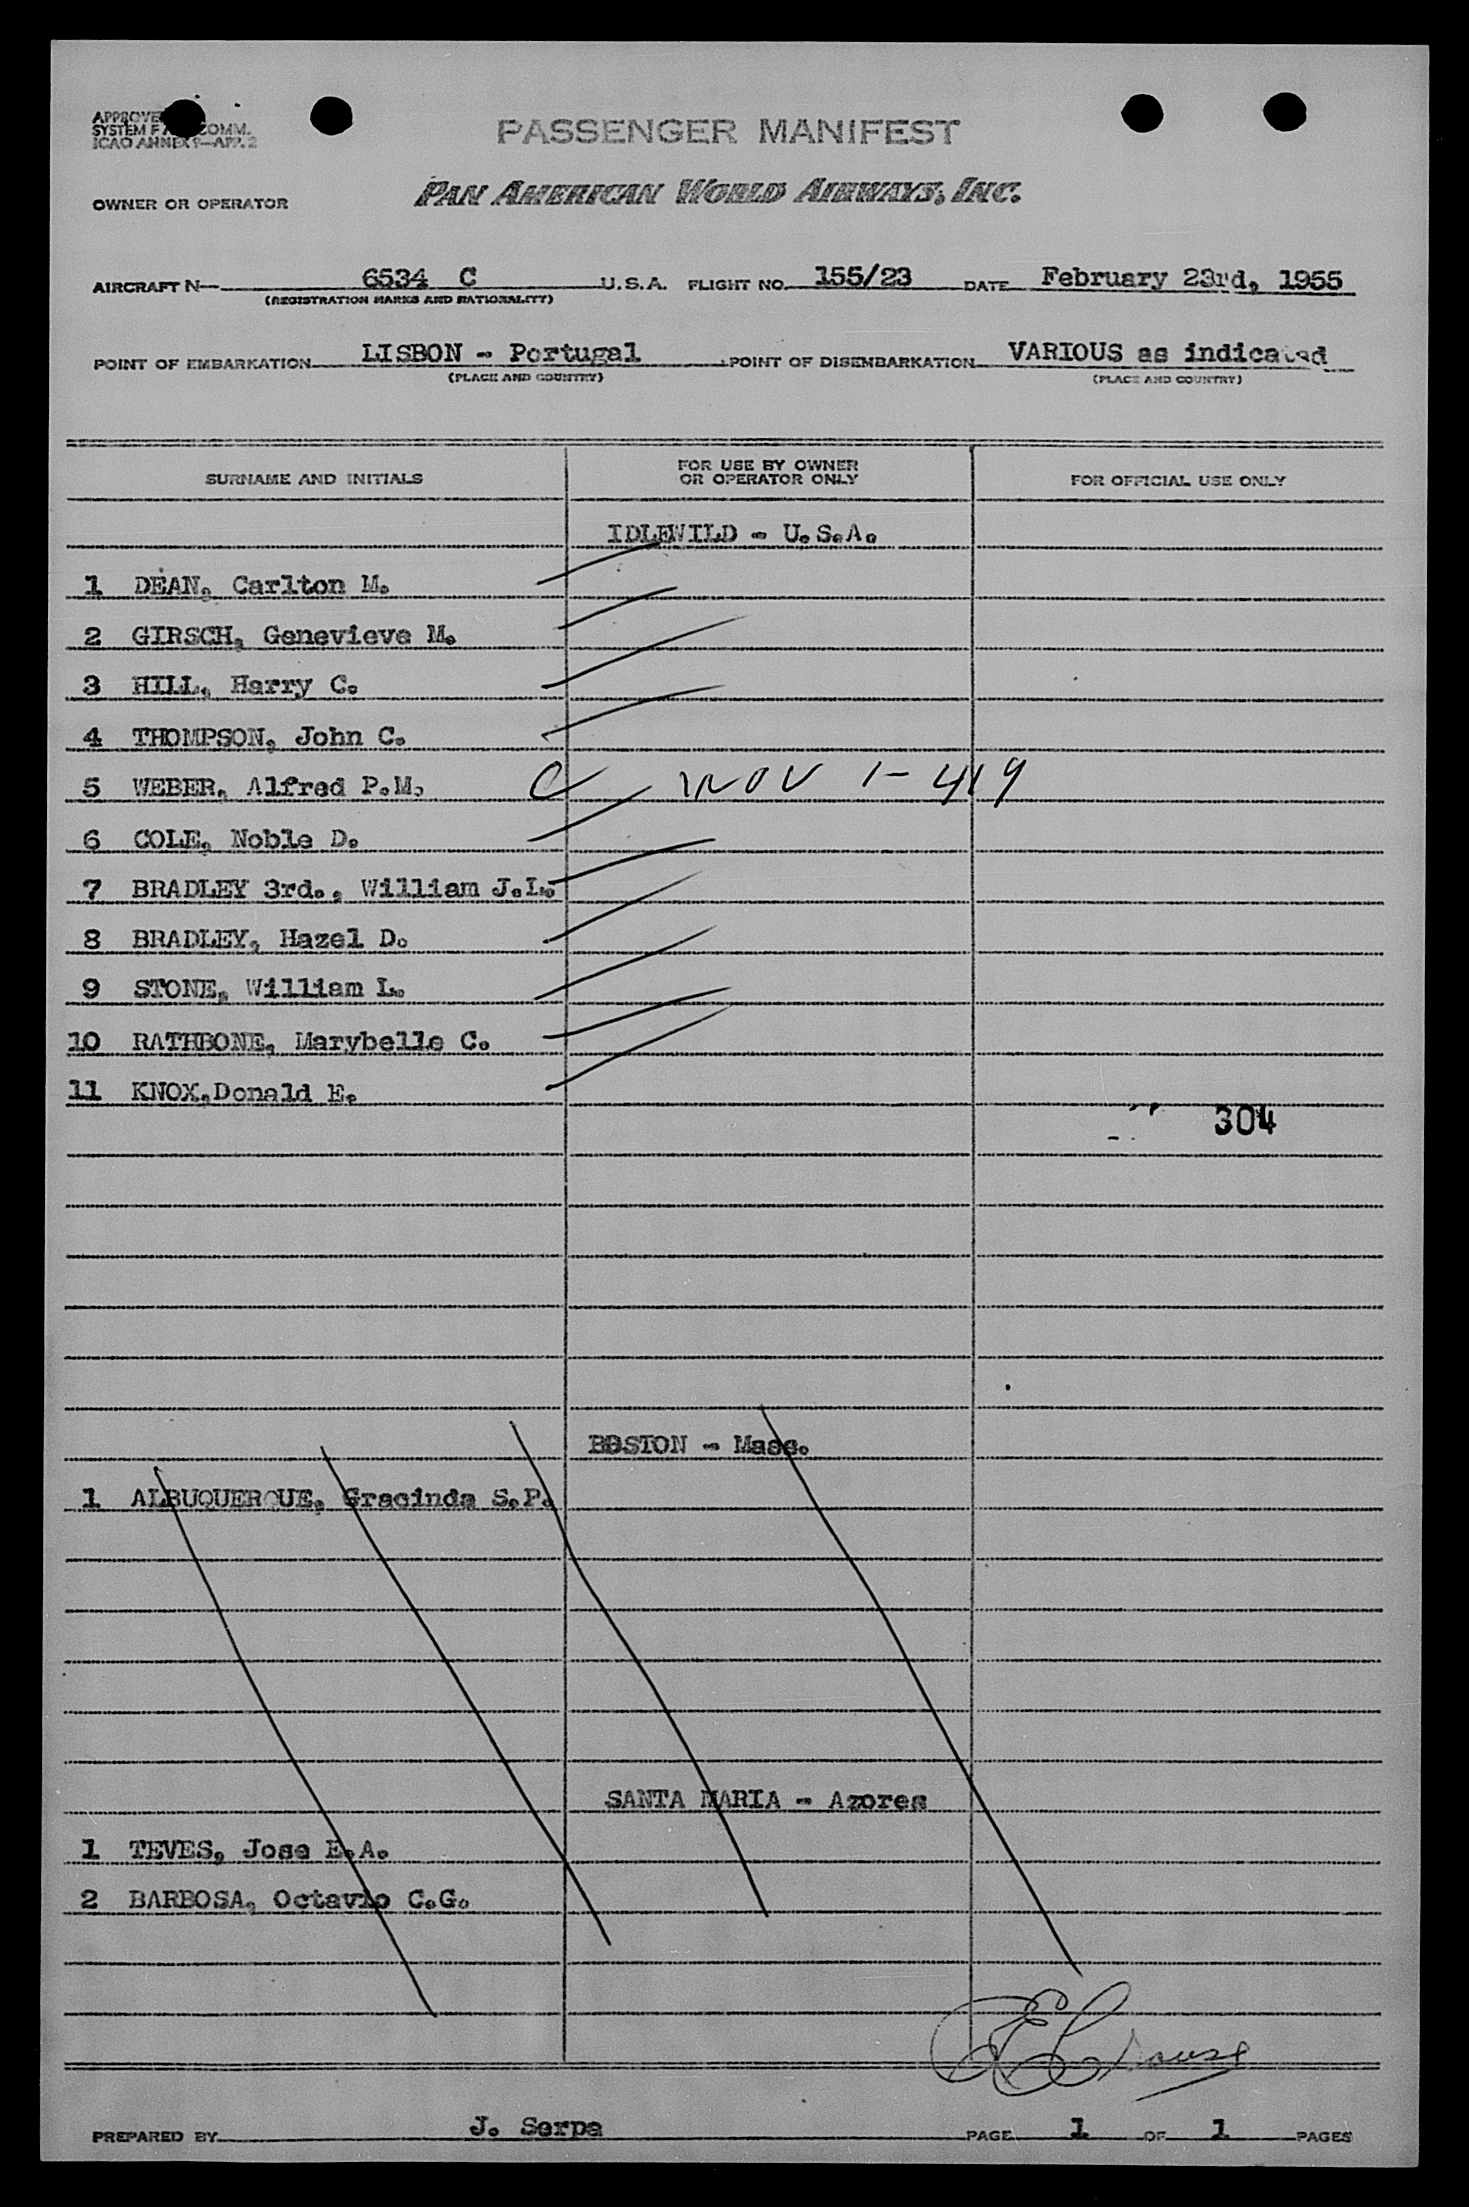 APPROVE
SYSTEM F COMM.
ICAO ANNEX 9—APP. 2
PASSENGER MANIFEST
OWNER OR OPERATOR
PAN AMERICAN WORLD AIRWAYS, INC.
AIRCRAFT N— 6534 C U.S.A. FLIGHT NO. 155/23 DATE February 23rd, 1955
(REGISTRATION MARKS AND NATIONALITY)
POINT OF EMBARKATION LISBON - Portugal POINT OF DISEMBARKATION VARIOUS as indicated
(PLACE AND COUNTRY) (PLACE AND COUNTRY)
SURNAME AND INITIALS FOR USE BY OWNER OR OPERATOR ONLY FOR OFFICIAL USE ONLY
IDLEWILD - U.S.A.
1 DEAN, Carlton M.
2 GIRSCH, Genevieve M.
3 HILL, Harry C.
4 THOMPSON, John C.
5 WEBER, Alfred P.M. 1-419
6 COLE, Noble D.
7 BRADLEY 3rd., William J.L.
8 BRADLEY, Hazel D.
9 STONE, William L.
10 RATHBONE, Marybelle C.
11 KNOX,Donald E.
304
BOSTON - Mass.
1 ALBUQUERQUE, Gracinda S.P.
SANTA MARIA - Azores
1 TEVES, Jose E.A.
2 BARBOSA, Octavio C.G.
PREPARED BY J. Serpa PAGE 1 OF 1 PAGES